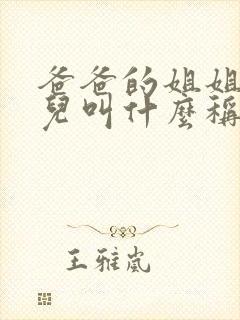 爸爸的姐姐
兒叫什麼稱
王雅嵐